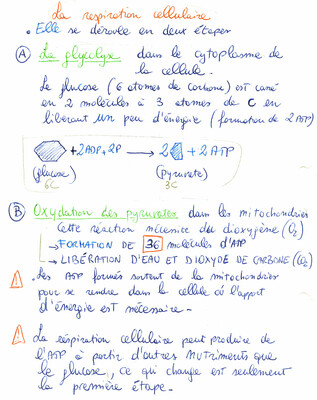 La respiration cellulaire
. Elle se déroule en deux étapes
A La glycolyse dans le cytoplasme de
la cellule.
Le glucose (6 atomes de carbone) est cassé
en 2 molécules à 3 atomes de C en
libérant un peu d'énergie (formation de 2 ATP)
+2ADP+2P → 2 + 2 ATP
(glucose) (pyruvate)
6C 3C
B Oxydation des pyruvates dans les mitochondries
Cette réaction nécessite du dioxygène (O₂)
→ FORMATION DE 36 molécules d'ATP
→ LIBÉRATION D'EAU ET DIOXYDE DE CARBONE (CO₂)
! Les ATP formés sortent de la mitochondries
pour se rendre dans la cellule où l'apport
d'énergie est nécessaire.
! La respiration cellulaire peut produire de
l'ATP à partir d'autres nutriments que
le glucose, ce qui change est seulement
la première étape.